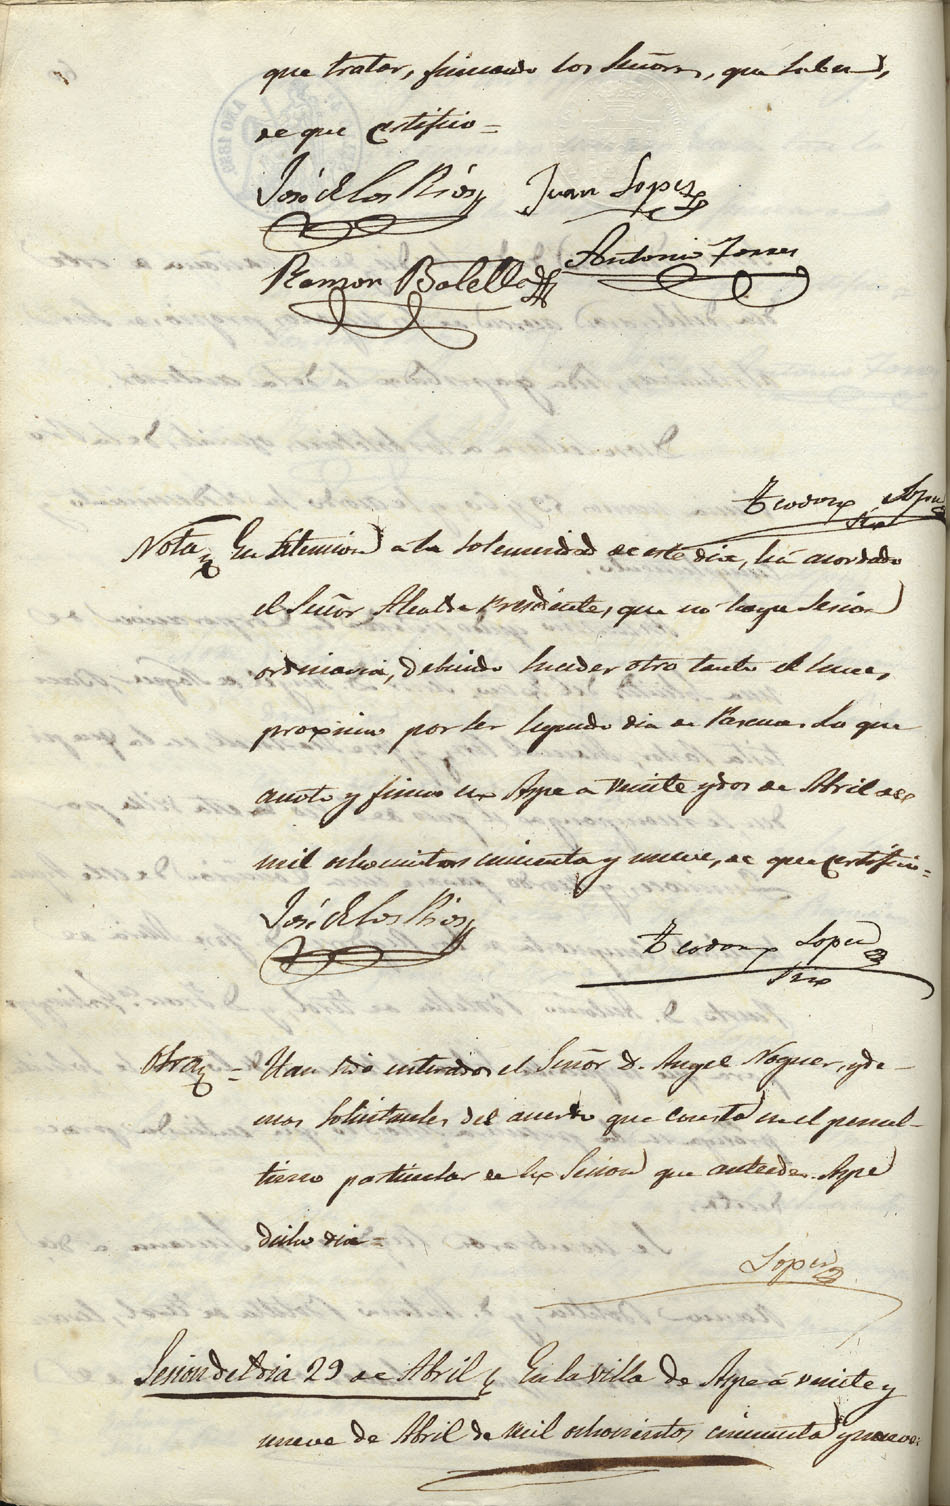 que tratar, firmando los Señores, que saben,
de que certifico =
José de los Rios Juan Lopez
Antonio Torres
Ramon Botella
Teodoro Lopez
Srio
Nota En atencion á la solemnidad de este dia, há acordado
el Señor Alcalde Presidente, que no haya Sesion
ordinaria, debiendo suceder otro tanto el lunes
proximo por ser segundo dia de Pascua. Lo que
anoto y firmo en Aspe á veinte y dos de Abril de
mil ochocientos cincuenta y nueve, de que certifico =
José de los Rios
Teodoro Lopez
Srio
Otra = Han sido enterados el Señor D. Angel Noguer, y de-
mas solicitantes del acuerdo que consta en el penul-
timo particular de la Sesion que antecede. Aspe
dicho dia =
Lopez
Sesion del dia 29 de Abril En la villa de Aspe á veinte y
nueve de Abril de mil ochocientos cincuenta y nueve